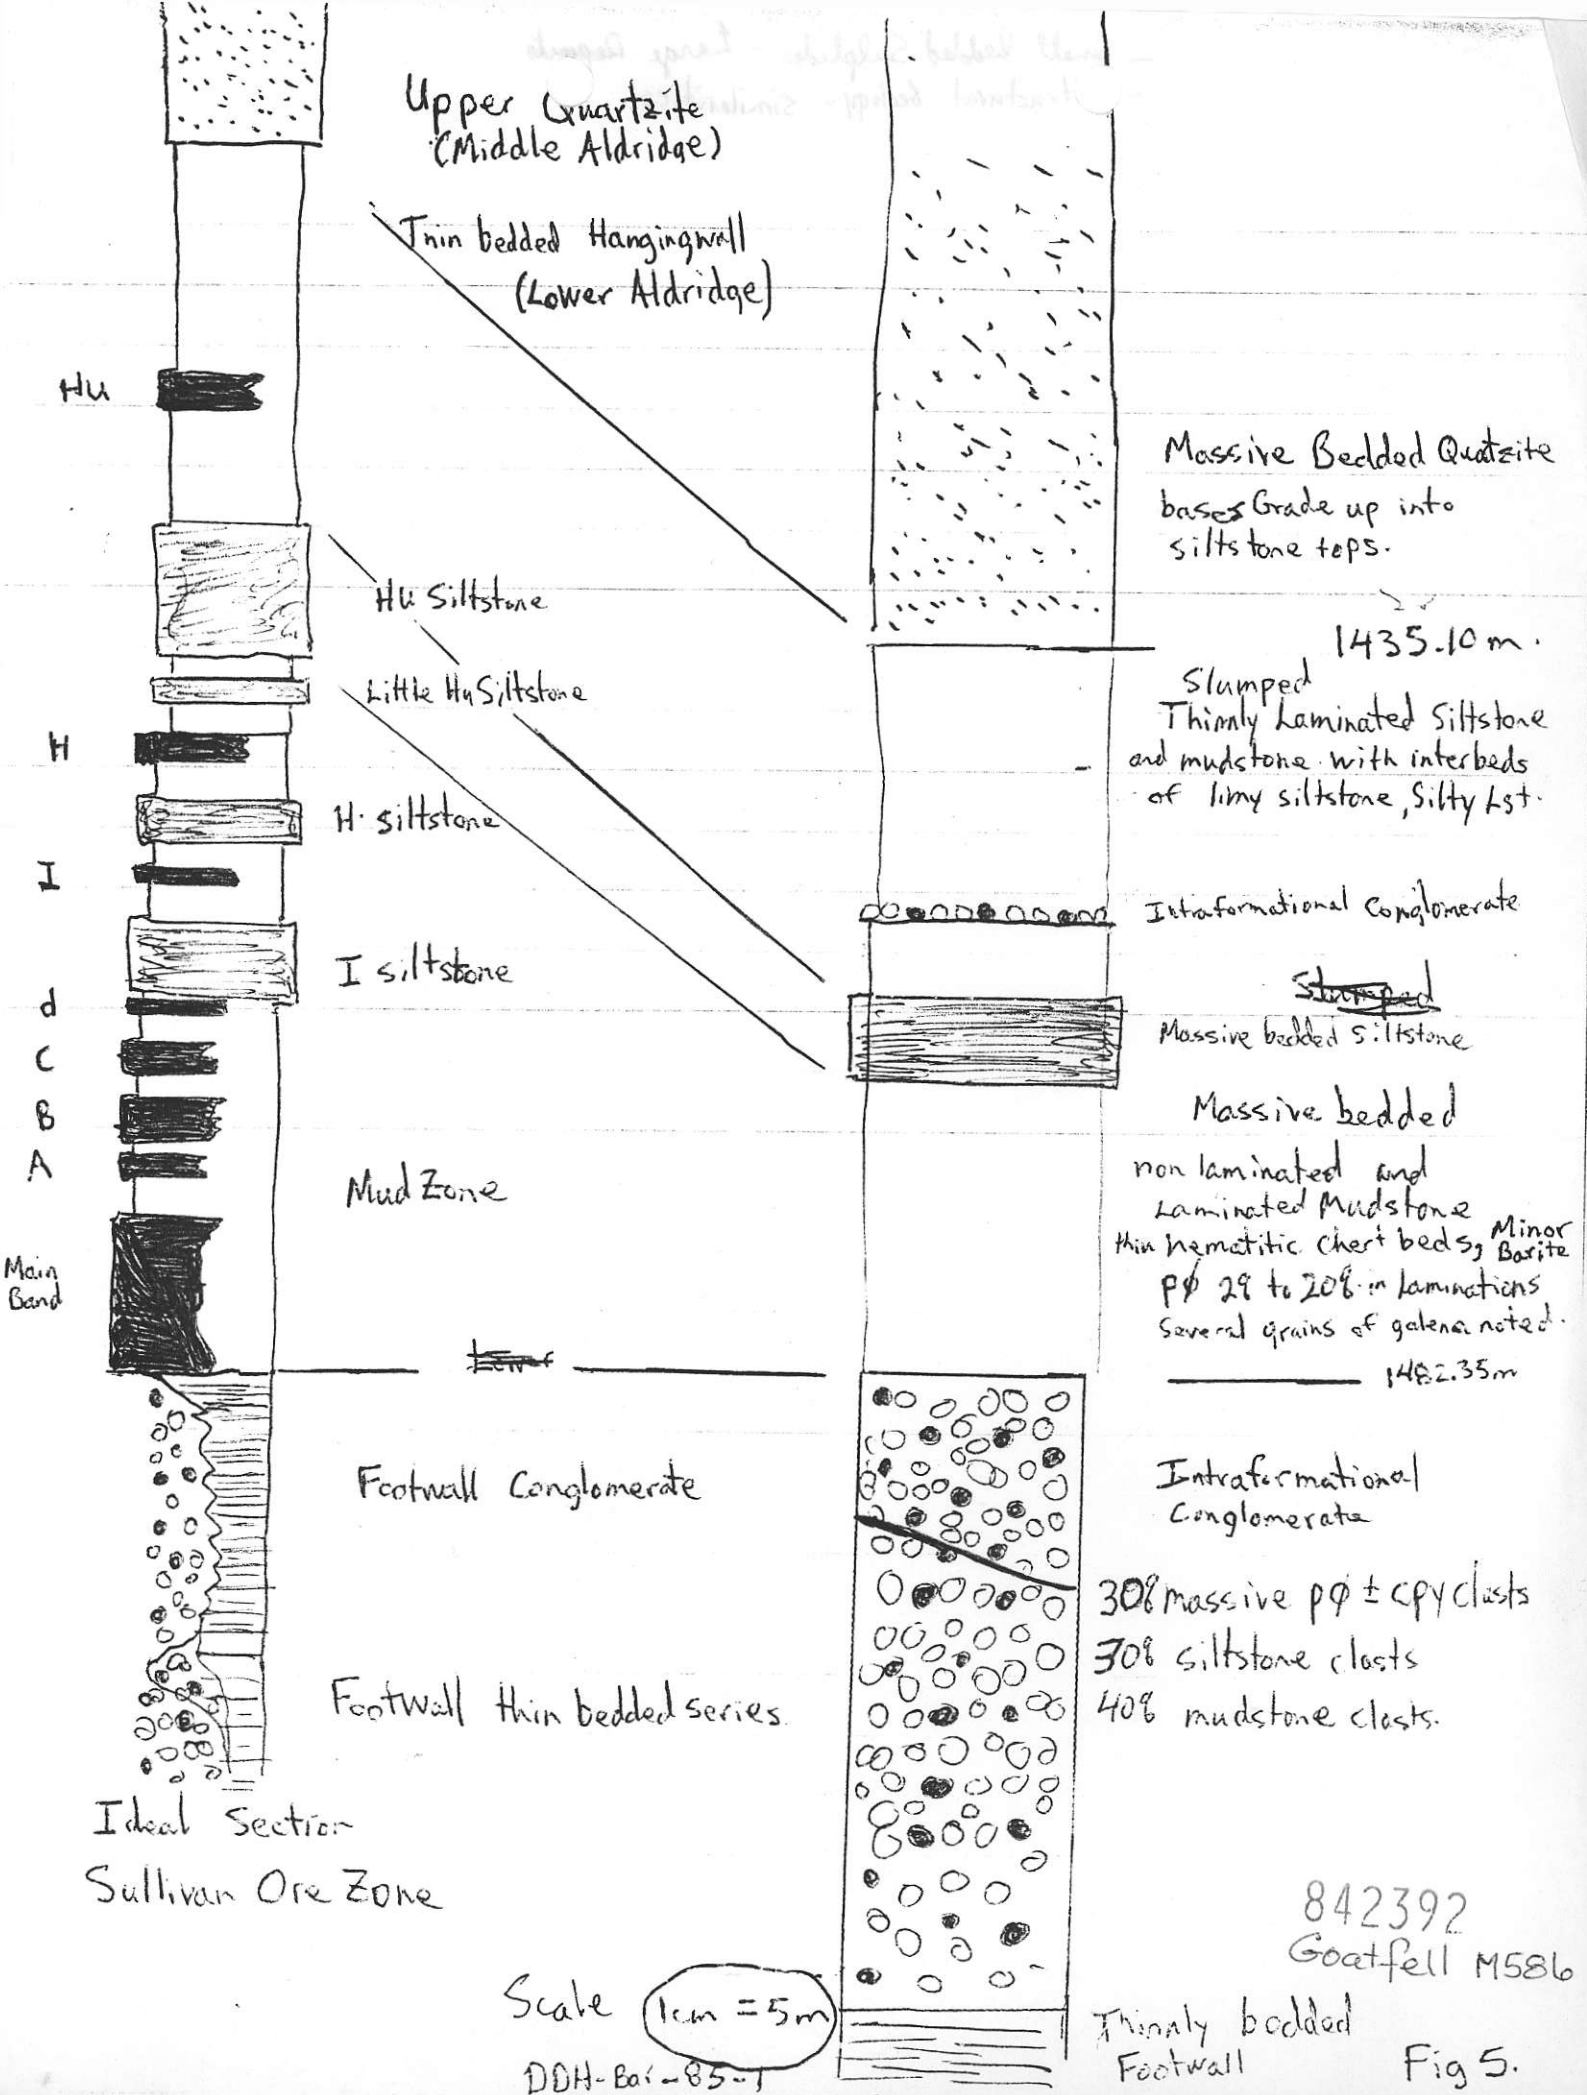 Upper Quartzite
(Middle Aldridge)
Thin bedded Hangingwall
(Lower Aldridge)
Hu
Hu Siltstone
Little Hu Siltstone
H
H. siltstone
I
I siltstone
d
C
B
A
Mud Zone
Main
Band
Footwall Conglomerate
Footwall thin bedded series.
Ideal Section
Sullivan Ore Zone
Massive Bedded Quatzite
bases Grade up into
siltstone tops.
1435.10 m.
Slumped
Thinnly Laminated Siltstone
and mudstone with interbeds
of limy siltstone, Silty Lst.
Intraformational Conglomerate
Slumped
Massive bedded Siltstone
Massive bedded
non laminated and
Laminated Mudstone
thin hematitic chert beds, Minor
Barite
pø 2% to 20% in Laminations
Several grains of galena noted.
1482.35m
Intraformational
Conglomerate
30% massive pø ± cpy clasts
30% siltstone clasts
40% mudstone clasts.
842392
Goatfell M586
Scale 1cm = 5m
Thinnly bedded
Footwall
DDH-Bar-85-1
Fig 5.